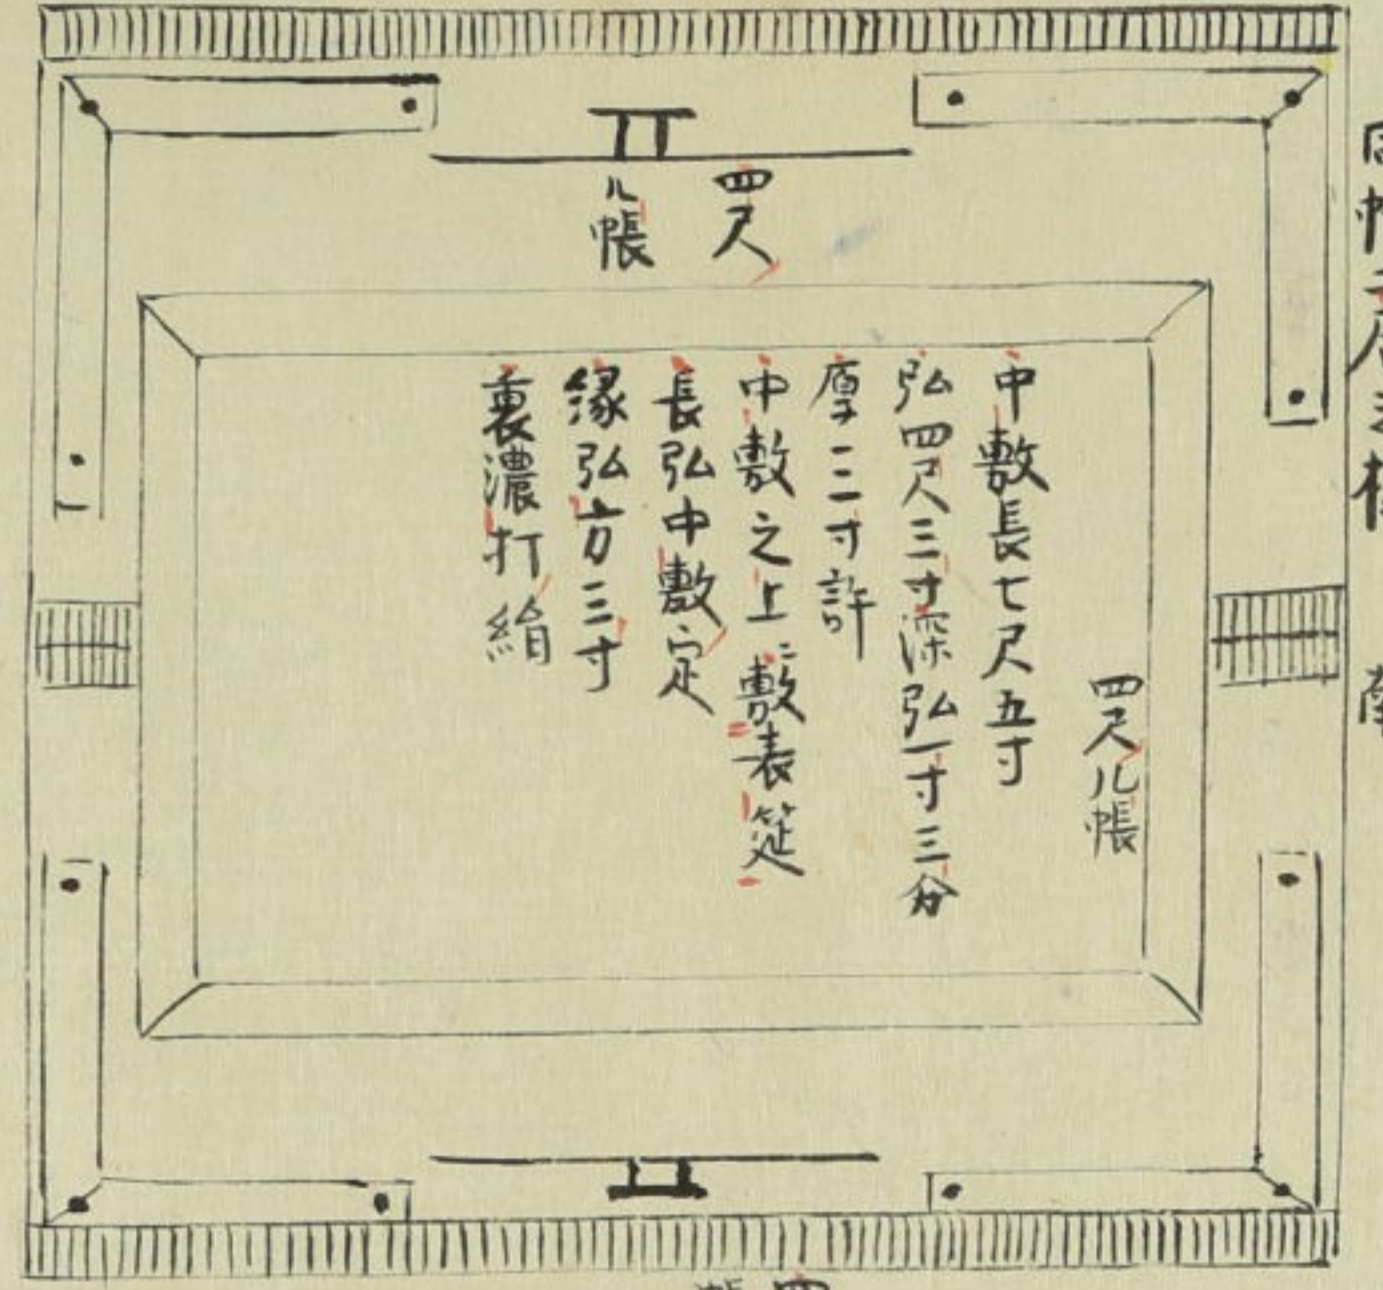 四尺
几帳
四尺几帳
中敷長七尺五寸
弘四尺三寸深弘一寸三分
厚二三寸許
中敷之上ニ敷表筵
長弘中敷定
縁弘方三寸
裏濃打絹